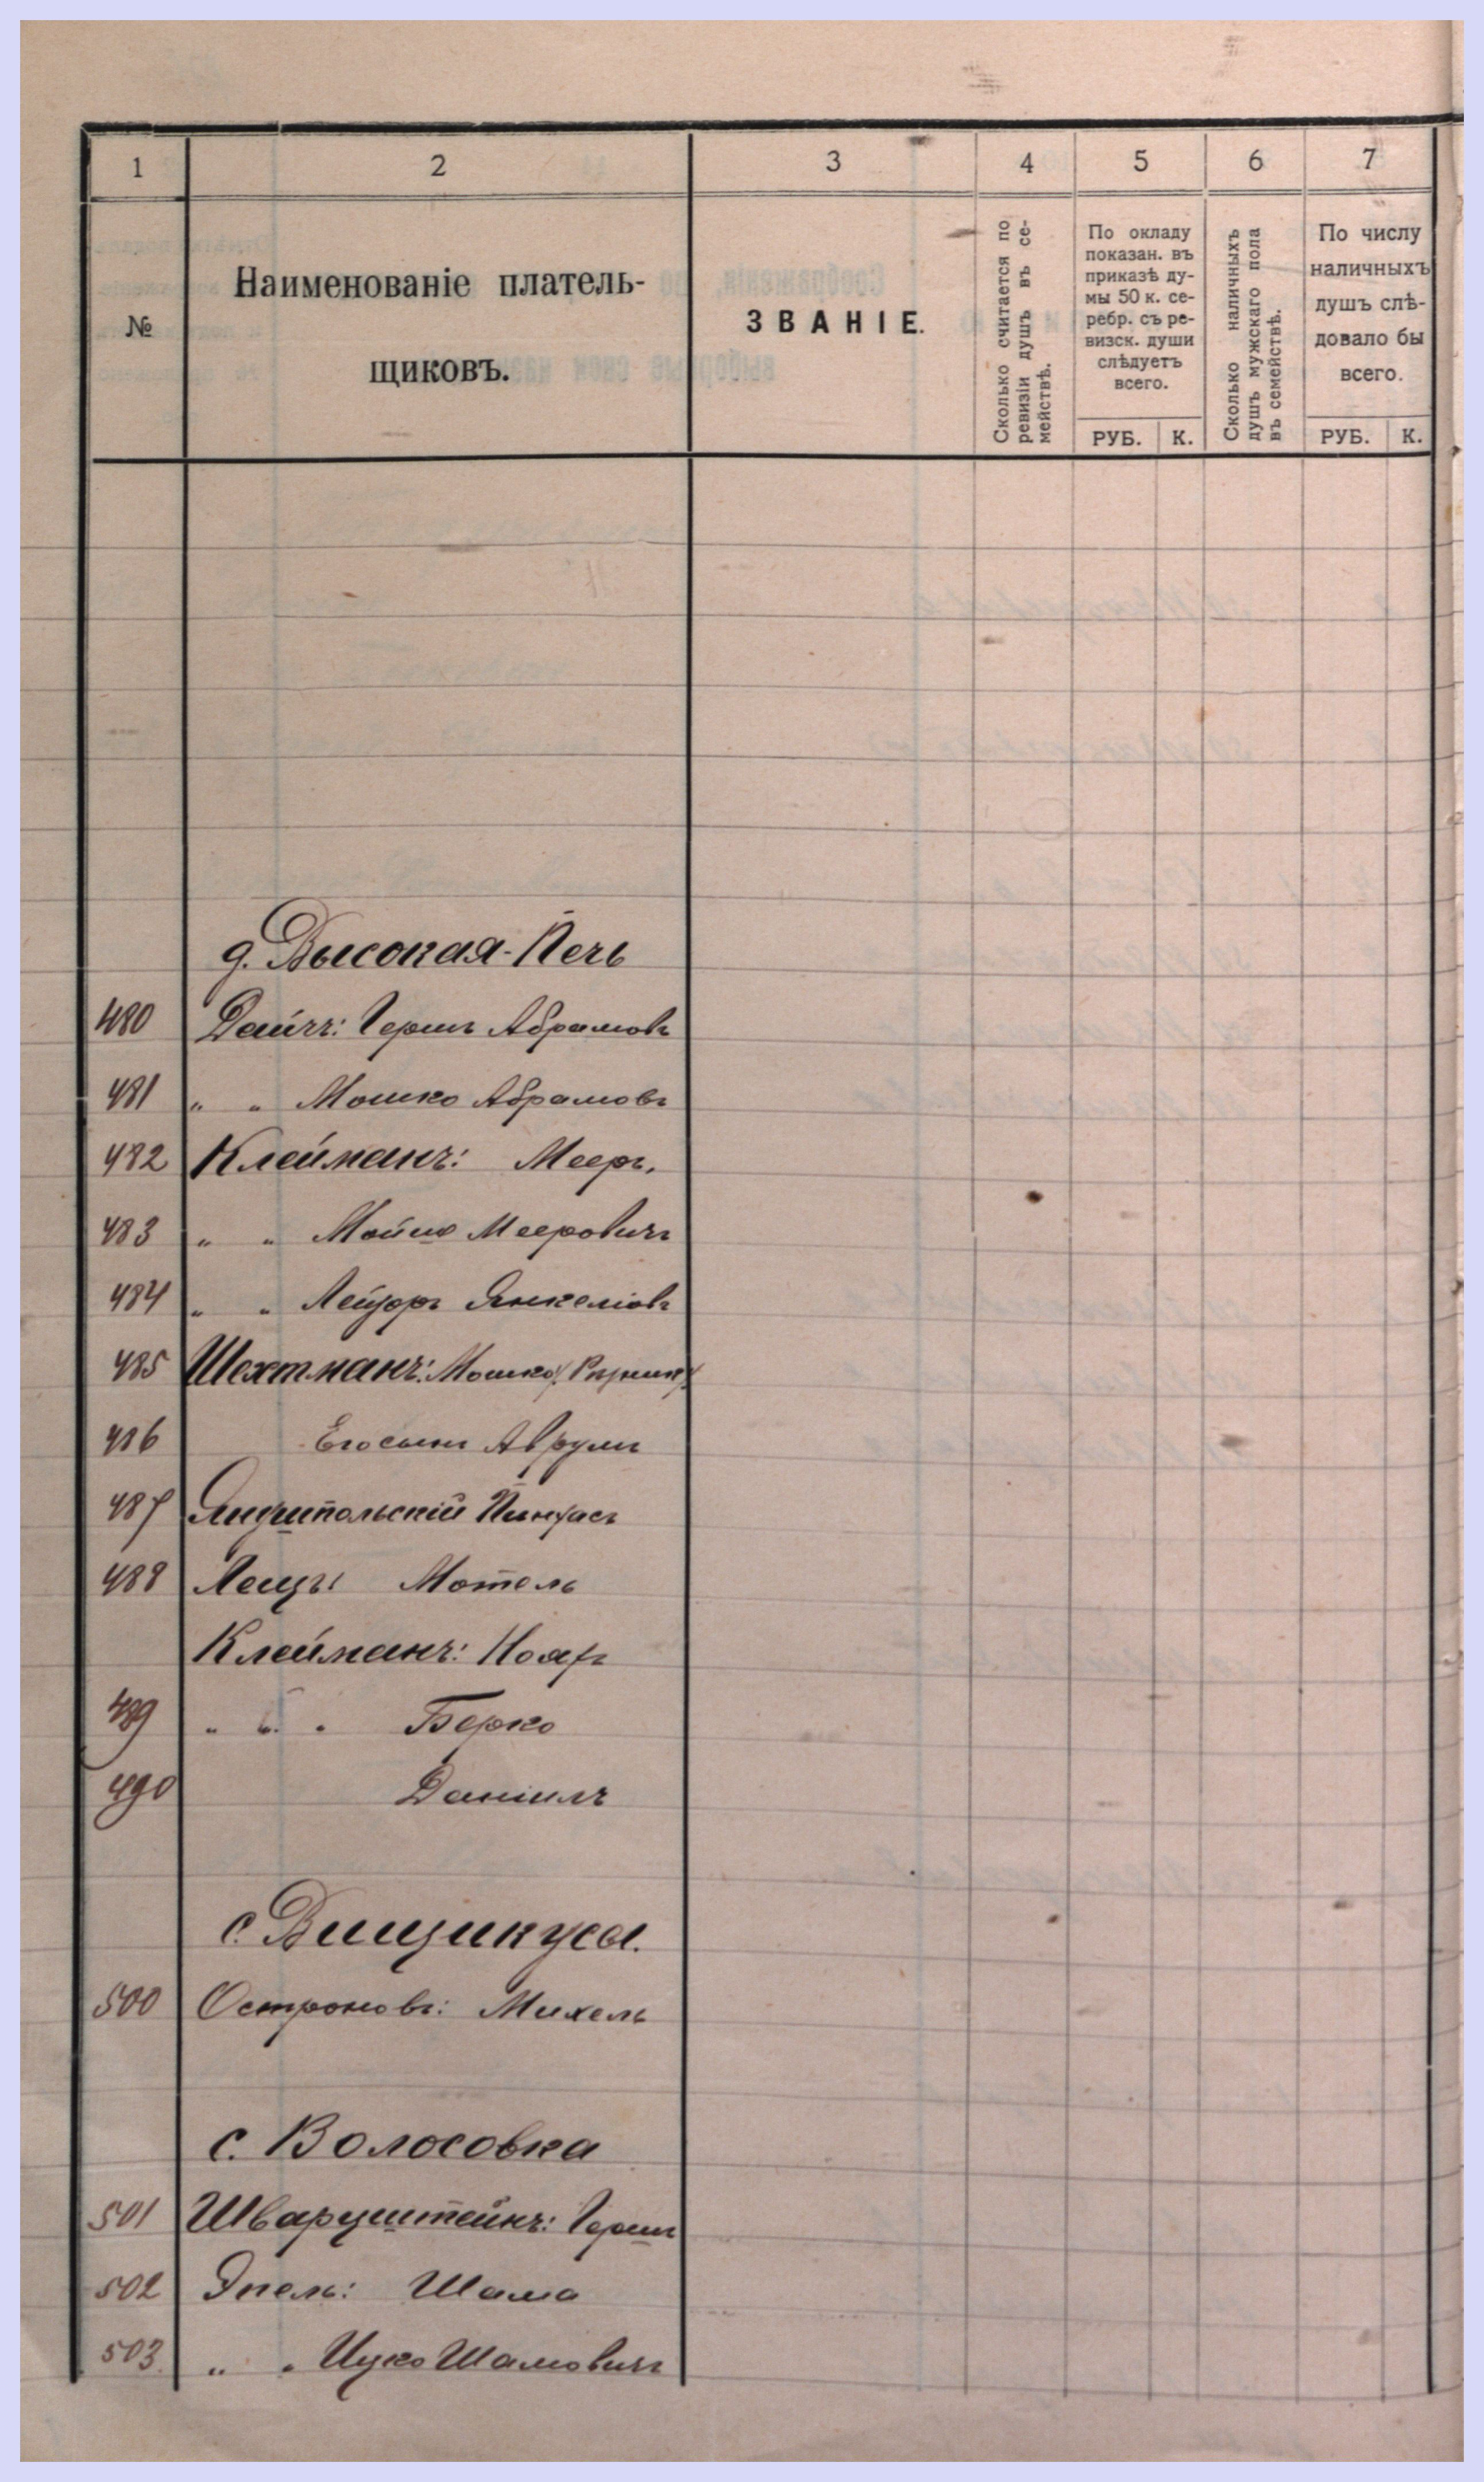 1
2
3
4
5
6
7
№
Наименованіе платель-
щиковъ.
ЗВАНІЕ.
Сколько считается по
ревизіи душъ въ се-
мействѣ.
По окладу
показан. въ
приказѣ ду-
мы 50 к. се-
ребр. съ ре-
визск. души
слѣдуетъ
всего.
РУБ. К.
Сколько наличныхъ
душъ мужскаго пола
въ семействѣ.
По числу
наличныхъ
душъ слѣ-
довало бы
всего.
РУБ. К.
д. Высокая-Печь
480 Дайчъ: Гершъ Абрамовъ
481 " " Мошко Абрамовъ
482 Клейманъ: Мееръ.
483 " " Мойше Мееровичъ
484 " " Лейзоръ Янкеліовъ
485 Шехтманъ: Мошко /: Рѣзникъ /:
486 Его сынъ Аврумъ
487 Янушпольскій Пинхасъ
488 Лещъ: Мотель
Клейманъ:
489 " " " Берко
490 Даніилъ
с. Вищикусы.
500 Остроновъ: Михель
с. Волосовка
501 Шварцштейнъ: Гершъ
502 Эпель: Шама
503 " " Ицко Шамовичъ